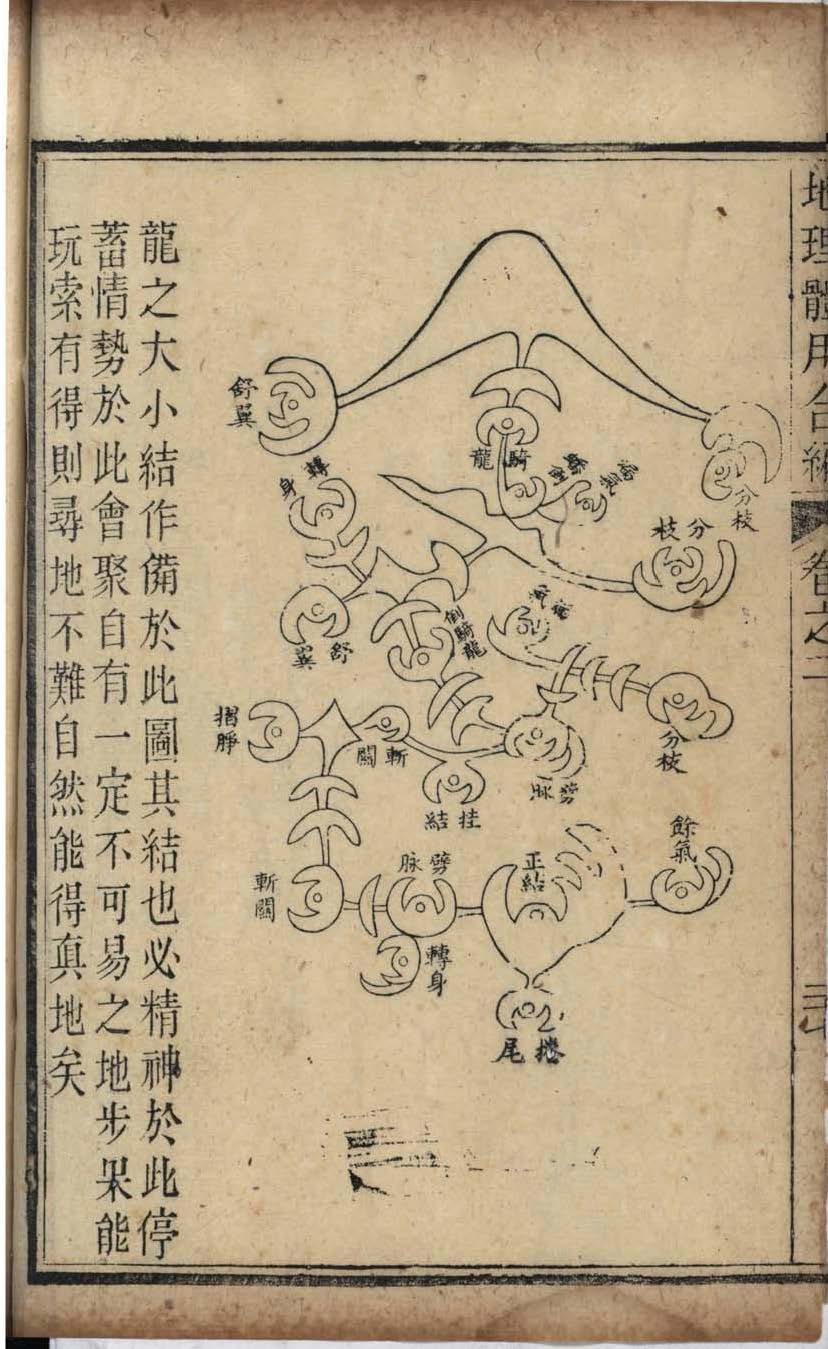 地理體用合編
卷之二
舒翼
騎龍
分枝
轉身
分枝
舒翼
倒騎龍
分枝
摺
斬關
劈脉
挂結
餘氣
斬關
劈脉
正結
轉身
捲尾
龍之大小結作備於此圖其結也必精神於此停
蓄情勢於此會聚自有一定不可易之地步果能
玩索有得則尋地不難自然能得真地矣